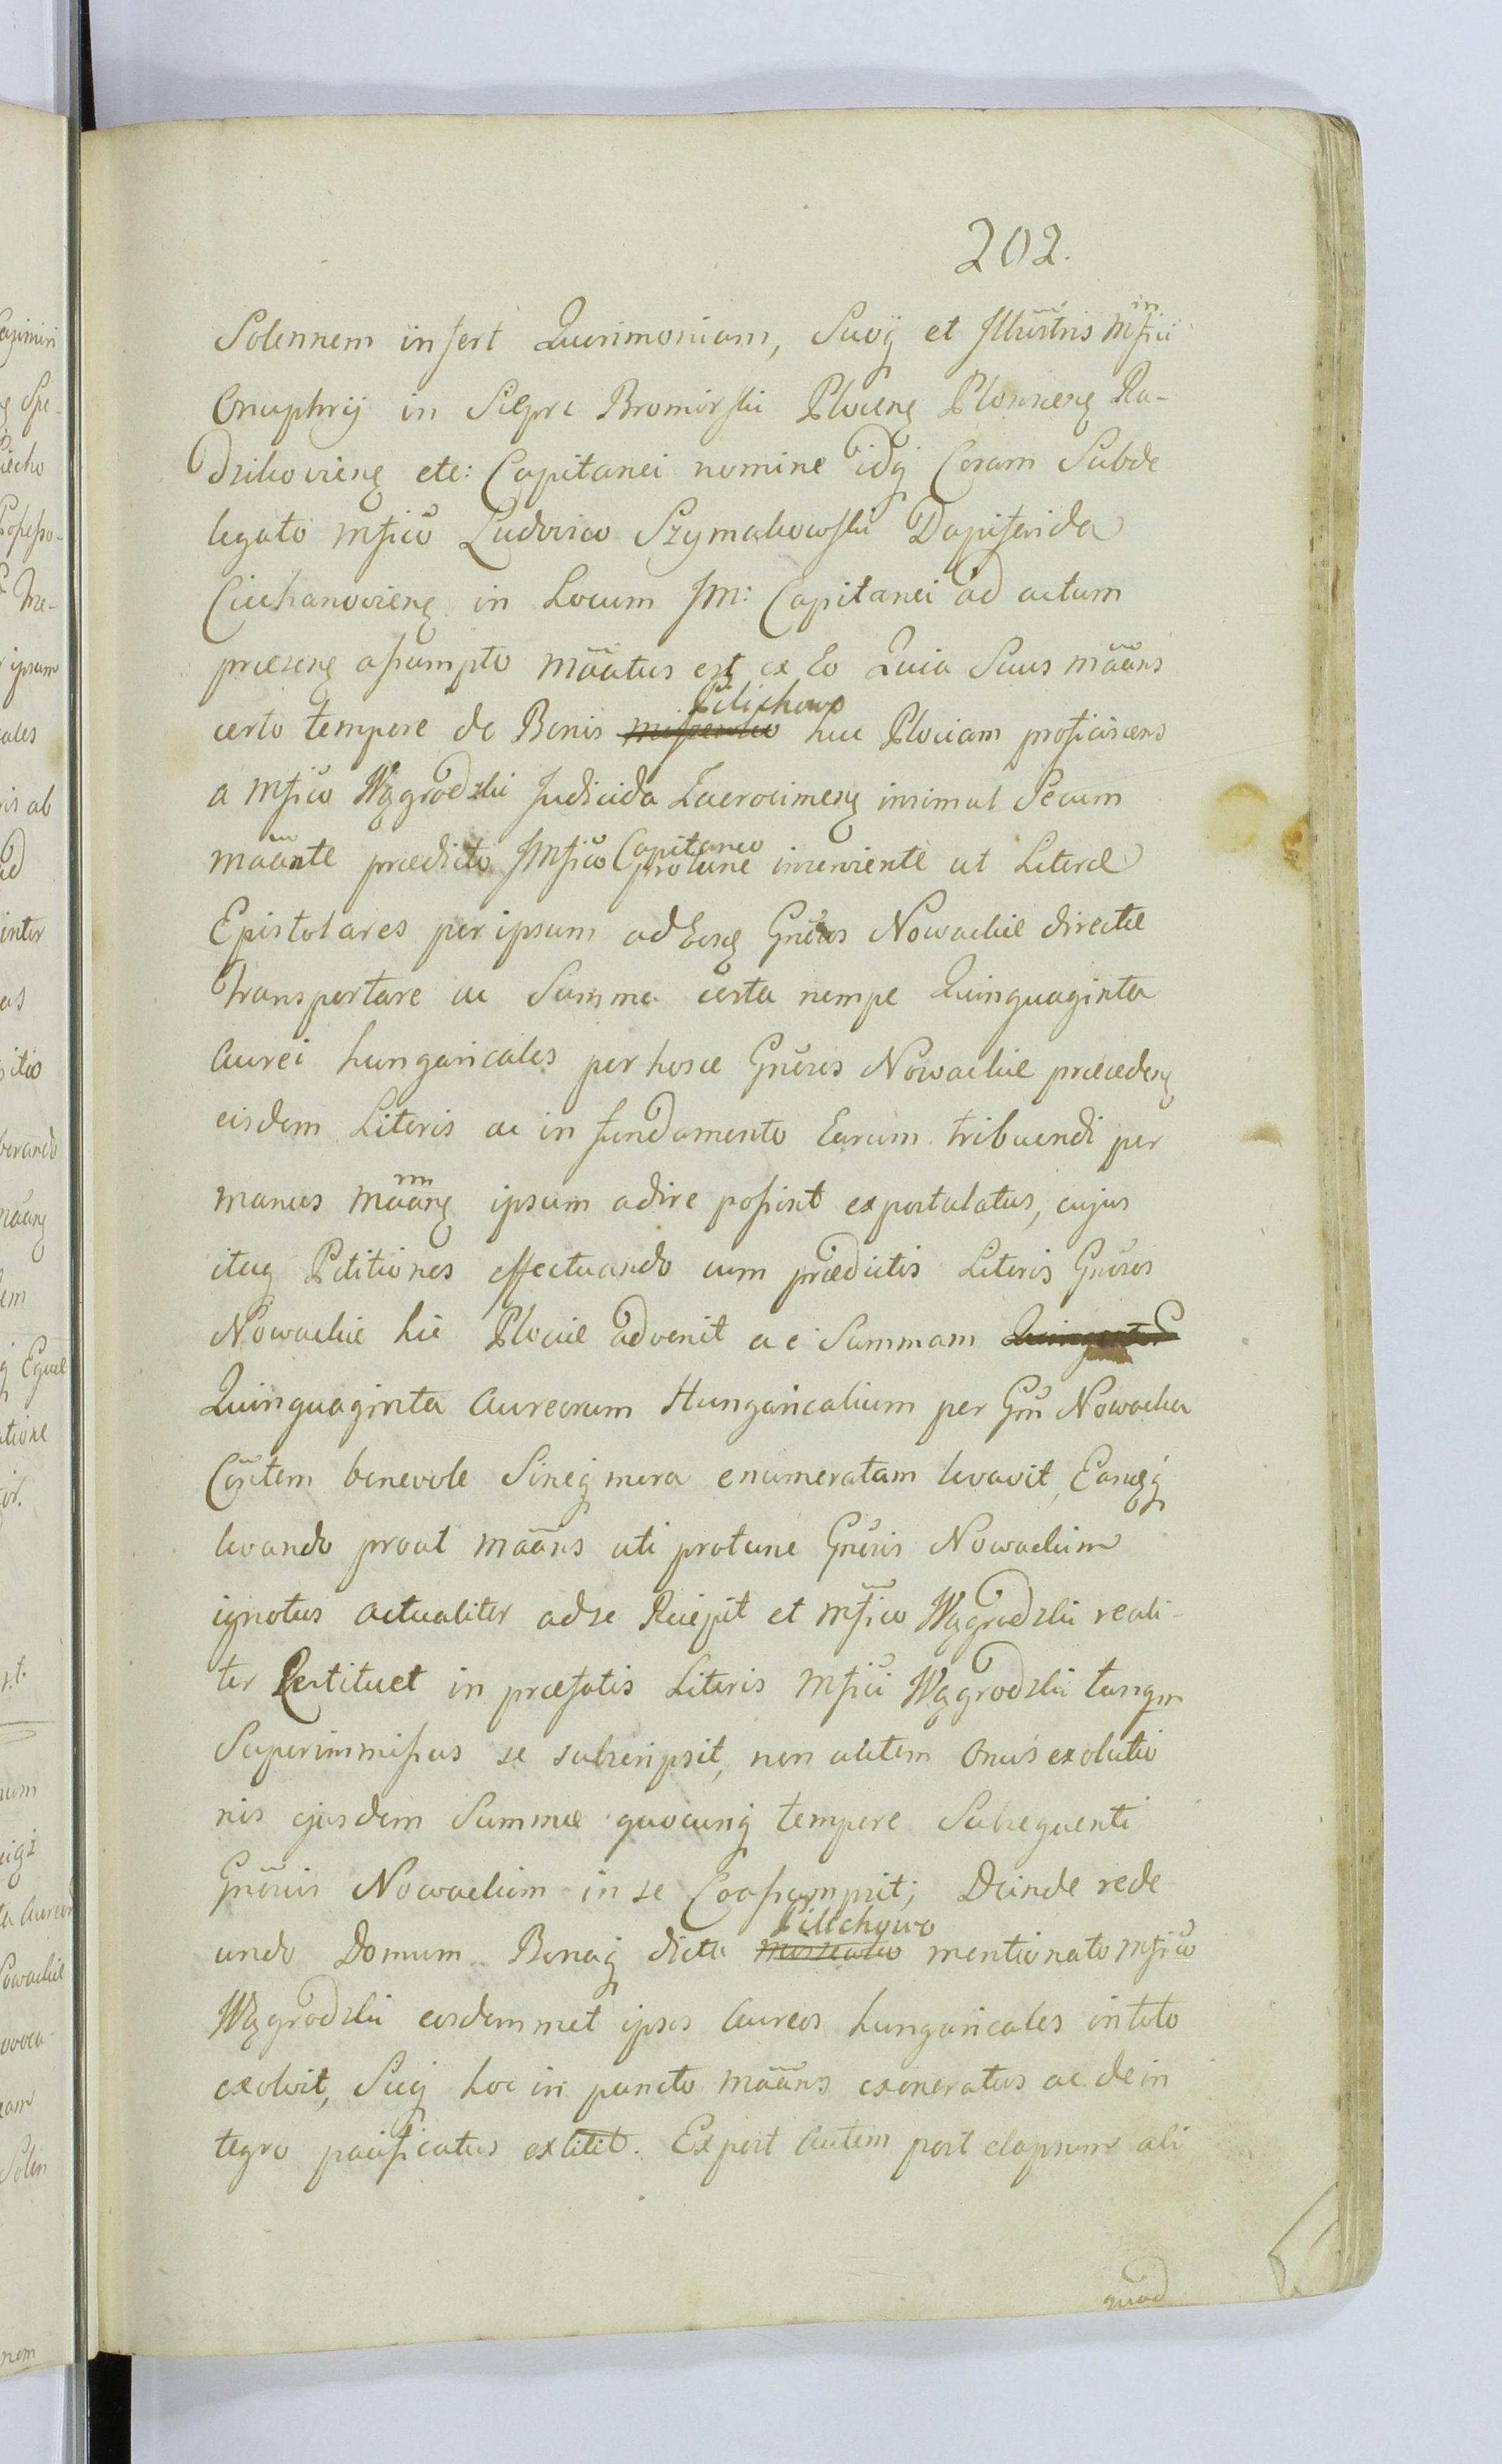 202.
Solennem infert Querimoniam, Suoq̃ et Illustris Mfici
Onuphrij in Siepre Bromirski Plocen̄ Plonscen̄ Ra-
dzikovien̄ etc: Capitanei nomine idq̃ Coram Subde
legato Mfico Ludovico Szymakowski Dapiferida
Ciechanovien̄ in Locum IM: Capitanei ad actum
præsen̄ assumpto mõatus est ex Eo Quia Suus mãans
certo tempore de Bonis Pilichowo huc Plociam proficiscens
a Mfico Wągrodzki Judicida Zacrocimen̄ insimul Secum
mãante prædicto IMfico Capitaneo protunc inserviente ut Literæ
Epistolares per ipsum ad Gn̄eros Nowackie directæ
transportare ac Summa certa nempe Quinquaginta
Aurei hungaricales per hosce Gn̄eros Nowackie præceden̄
eisdem Literis ac in fundamento Earum tribuendi per
manus mãan̄ ipsum adire possint expostulatus, cujus
itaq̃ Petitiones effectuando cum prædictis Literis Gn̄eros
Nowackie hic Plociæ advenit ac Summam
Quinquaginta Aureorum Hungaricalium per Gn̄ Nowacka
Cõntem benevole Sineq̃ mora enumeratam levavit, Eamq̃
levando prout mãans uti protunc Gn̄eris Nowackim
ignotus actualiter ad se Recepit et Mfico Wągrodzki reali-
ter Restituet in præfatis Literis Mfici Wągrodzki tanqm
Superimmissus se subscripsit, non autem Onus exolutio
nis ejusdem Summæ quocunq̃ tempore Subsequenti
Gn̄eris Nowackim in se Coassumpsit; Deinde rede
undo Domum Bonaq̃ dicta Pilichowo mentionato Mfico
Wągrodzki eosdemmet ipsos Aureos hungaricales in toto
exolvit, Sicq̃ hoc in puncto mãans exoneratus ac de in
tegro pacificatus extitit. Expost Autem post elapsum ali
quod